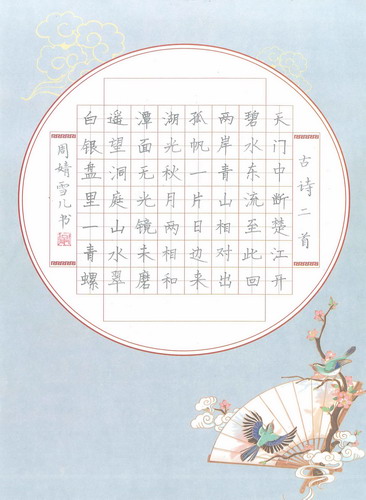 古诗二首
天门中断楚江开
碧水东流至此回
两岸青山相对出
孤帆一片日边来
湖光秋月两相和
潭面无光镜未磨
遥望洞庭山水翠
白银盘里一青螺
周婧雪儿书